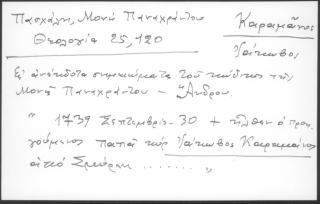 Πασχάλη, Μονή Παναχράντου
Θεολογία 25, 120
Καραμᾶνος
Ἰάκωβος
Ἐξ ἀνεκδότου σημειώματος τοῦ κώδικος τῆς
Μονῆς Παναχράντου – Ἄνδρου.
" 1739 Σεπτεμβρίῳ - 30 + ἦλθεν ὁ προη-
γούμενος παπᾶ κὺρ Ἰάκωβος Καραμάνος
ἀπὸ Σμύρνη ........ "